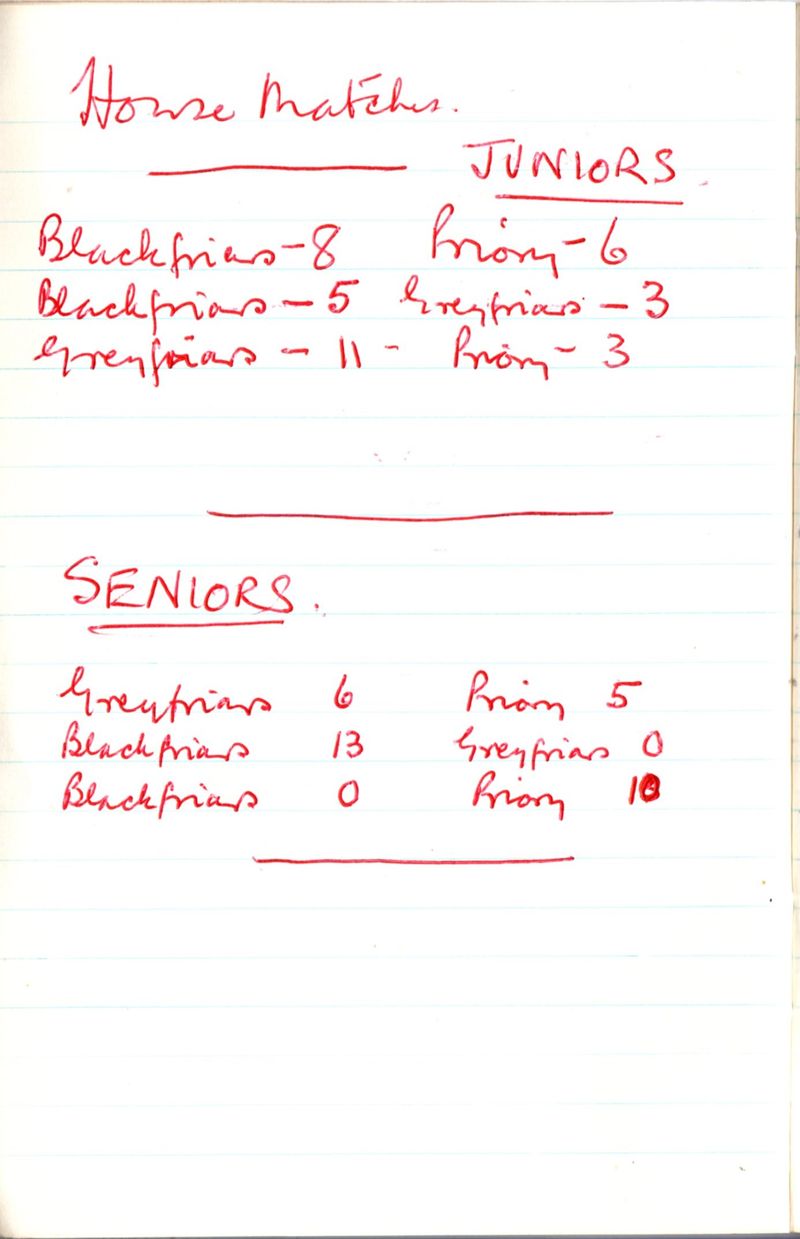 House Matches.
JUNIORS.
Blackfriars - 8 Priory - 6
Blackfriars - 5 Greyfriars - 3
Greyfriars - 11 - Priory - 3
SENIORS.
Greyfriars 6 Priory 5
Blackfriars 13 Greyfriars 0
Blackfriars 0 Priory 10